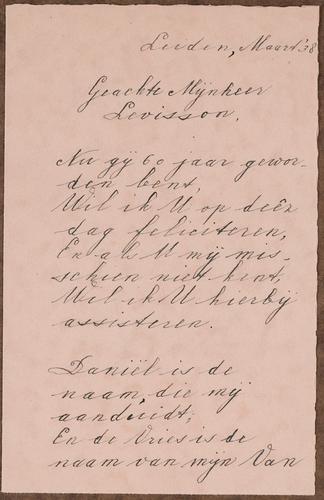 Leiden, Maart '38
Geachte Mijnheer
Levisson,
Nu gij 60 jaar gewor-
den bent,
Wil ik U op deez'
dag feliciteren,
En als U mij mis-
schien niet kent,
Wil ik U hierbij
assisteren.
Daniël is de
naam, die mij
aanduidt;
En de Vries is de
naam van mijn Van